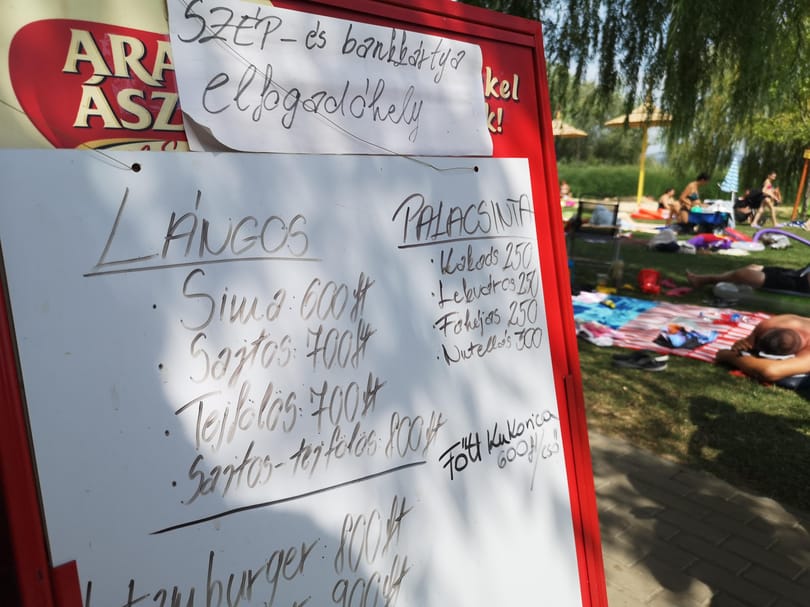 SZÉP- és bankkártya
elfogadóhely
ARA
ÁSZ
kel
k!
LÁNGOS
• Sima: 600 ft
• Sajtos: 700 ft
• Tejfölös: 700 ft
• Sajtos-tejfölös: 800 ft
PALACSINTA
• Kakaós 250
• Lekváros 250
• Fahéjas 250
• Nutellás 300
Főtt kukorica
600 ft/cső
burger: 800 ft
900 ft